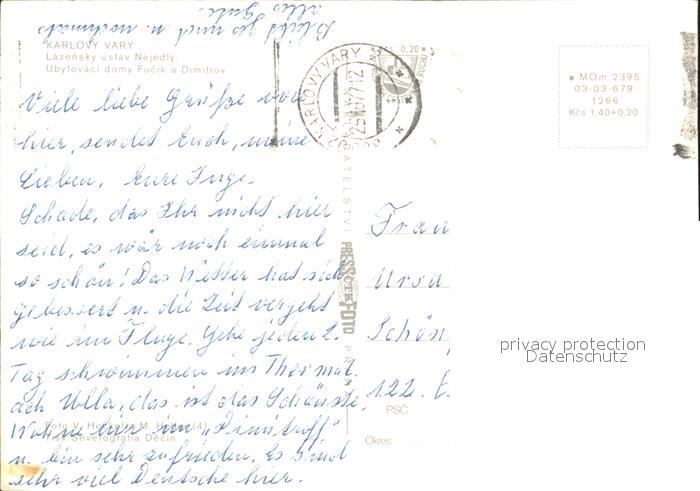 Bleibt gesund u. nochmals
alles Gute.
KARLOVY VARY
Lázeňský ústav Nejedlý.
Ubytovací domy Fučík a Dimitrov
KARLOVY VARY
0,20
MOm 2395
03-03-679
1266
Kčs 1,40+0,20
Viele liebe Grüße von
hier, sendet Euch, meine
Lieben, Eure Inge.
Schade, das Ihr nicht hier
seid, es wär noch einmal
so schön! Das Wetter hat sich
gebessert u. die Zeit vergeht
wie im Fluge. Gehe jeden 2.
Tag schwimmen ins Thermal.
Ach Ulla, das ist das Schönste.
Wohne hier im „Dimitroff"
u. bin sehr zufrieden. Es sind
sehr viel Deutsche hier.
Foto V. M. (4)
Tisk Severografia Děčín
PRESSFOTO
Frau
Ursu
Schön
122
PSČ
Okres:
privacy protection
Datenschutz